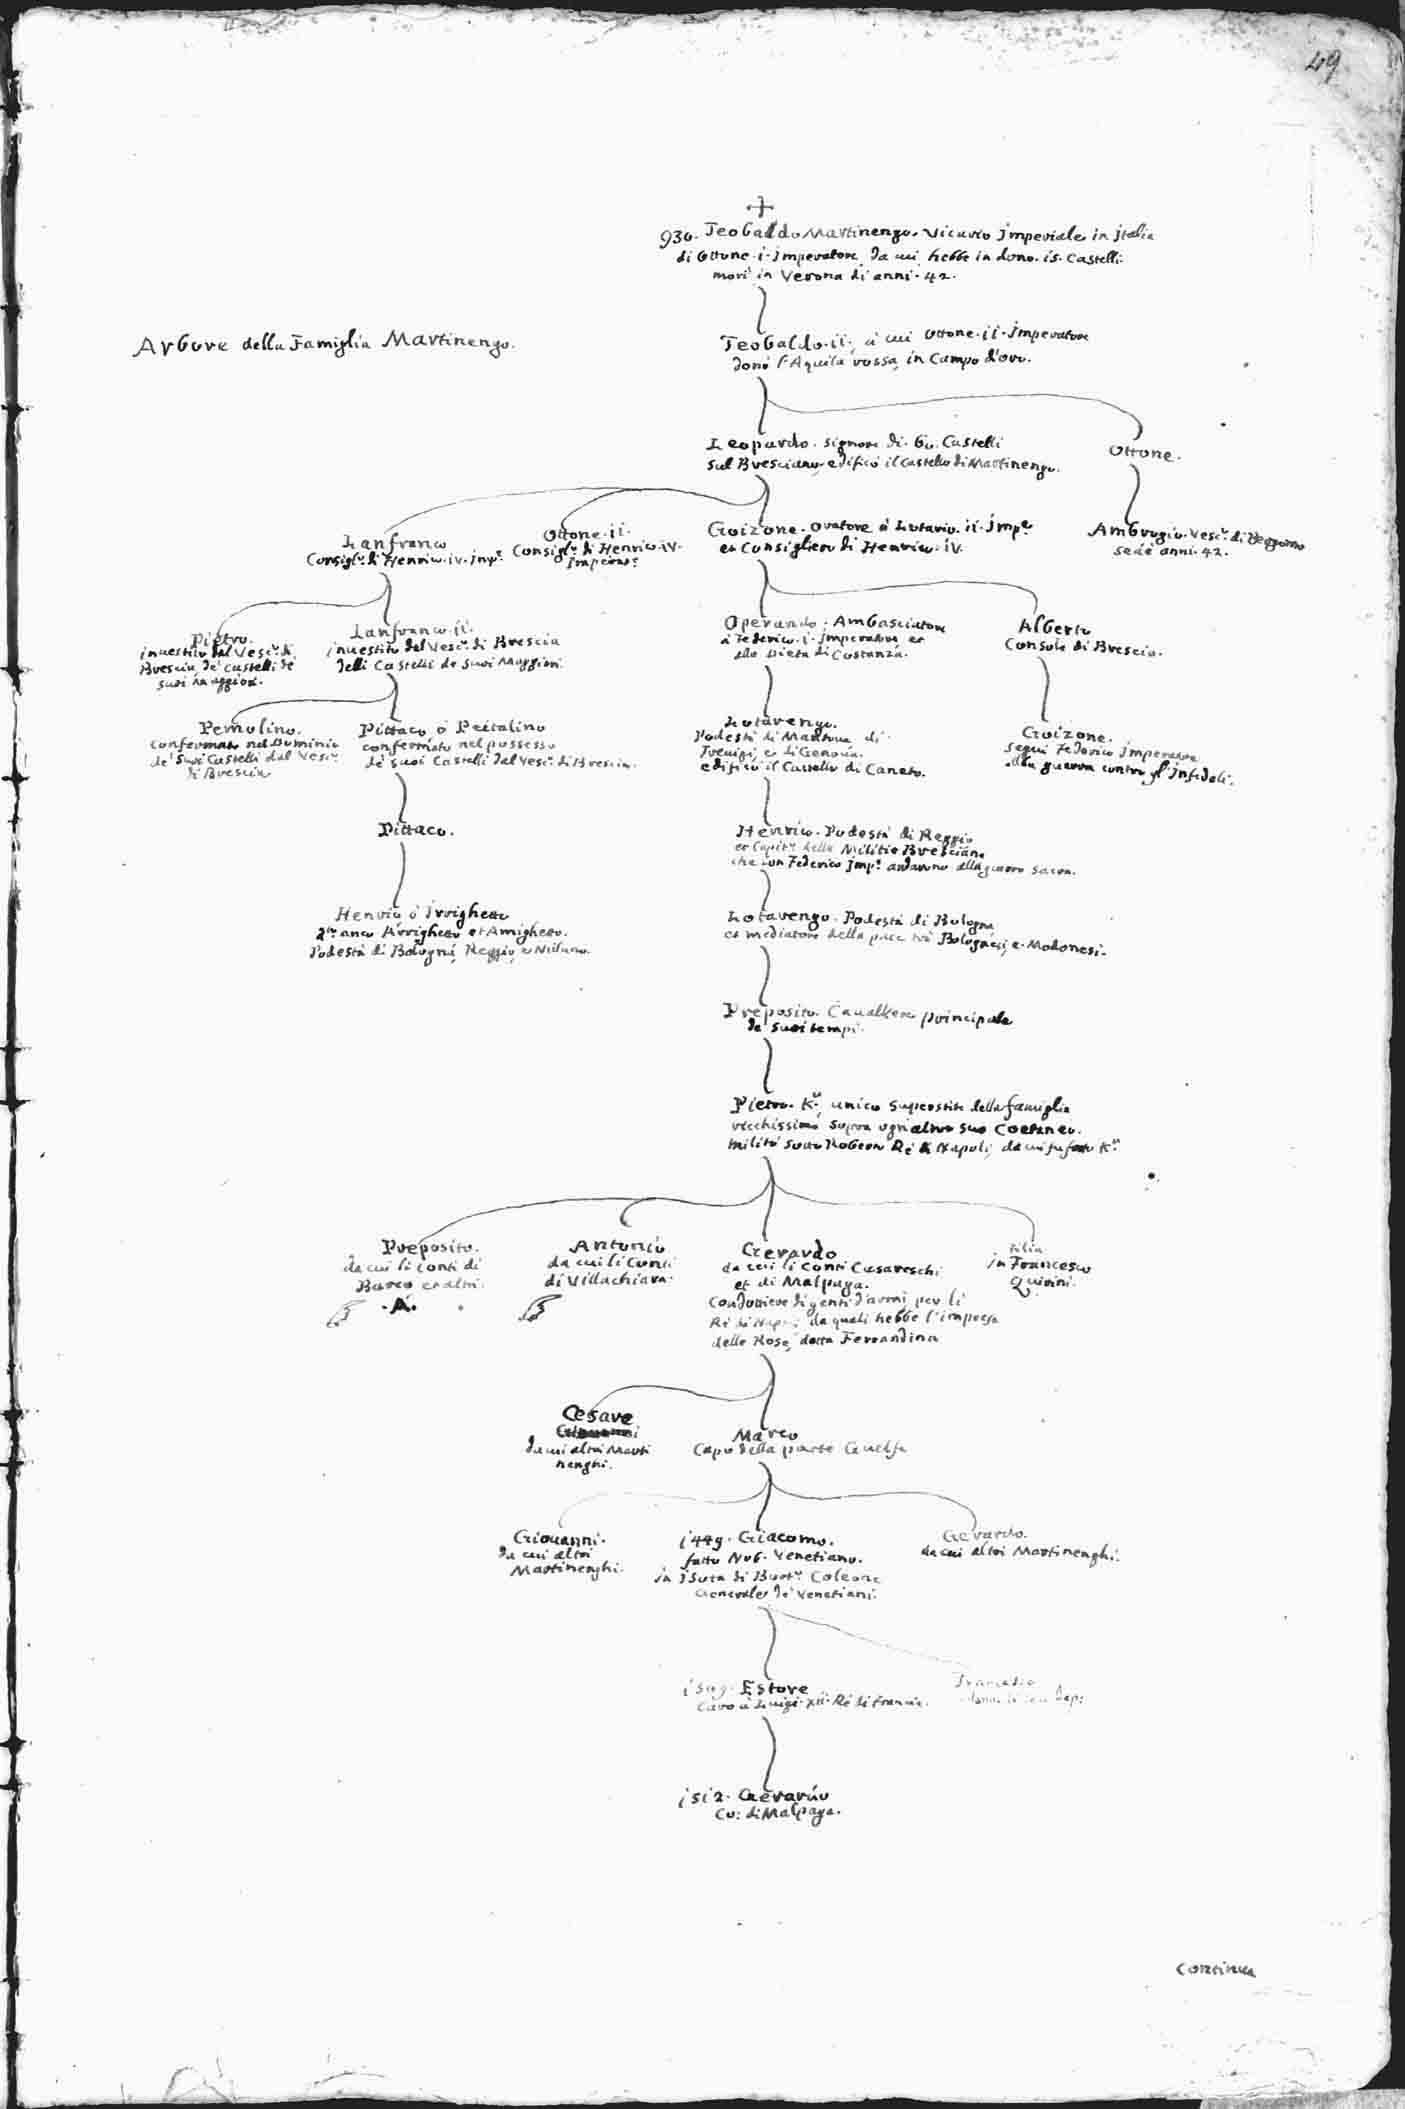 49
930. Teobaldo Martinengo. Vicario Imperiale in Italia
di Ottone i. Imperatore da cui hebbe in dono. 15. Castelli.
morì in Verona di anni. 42.
Arbore della Famiglia Martinengo.
Teobaldo. ii. à cui Ottone. ii. Imperatore
donò l'Aquila rossa, in Campo d'oro.
Leopardo. signore di. 60. Castelli
sul Bresciano, edificò il Castello di Martinengo.
Ottone.
Lanfranco
Consigl.r di Henrico. iv. Imp.e
Ottone. ii.
Consigl.r di Henrico. iv.
Imperat.e
Goizone. Oratore à Lotario. ii. Imp.e
et Consigliero di Henrico. iv.
Ambrogio. Vesc.o di Bergomo
sedé anni. 42.
Pietro.
inuestito dal Vesc.o di
Brescia de' Castelli de
suoi maggiori.
Lanfranco. ii.
inuestito dal Vesc.o di Brescia
delli Castelli de suoi Maggiori.
Operando. Ambasciatore
à Federico. i. Imperatore et
alla Dieta di Costanza.
Alberto
Console di Brescia.
Pemolino.
confermato nel Dominio
de' suoi Castelli dal Vesc.o
di Brescia
Pittaco, ò Peitalino
confermato nel possesso
de' suoi Castelli dal Vesc.o di Brescia.
Lotarengo.
Podestà di Mantoua di
Treuigi, e di Genoua.
edificò il Castello di Caneto.
Goizone.
seguì Federico Imperatore
alla guerra contro gl'Infedeli.
Pittaco.
Henrico. Podestà di Reggio
et Capit.o della Militia Bresciana
che con Federico Imp.e andarono alla guerra sacra.
Henrico ò Irrighetto
anco Arrighetto et Amighetto.
Podestà di Bologna, Reggio, e Milano.
Lotarengo. Podestà di Bologna
et mediatore della pace trà Bolognesi, e Modonesi.
Preposito. Caualiero principale
de' suoi tempi.
Pietro. K.r unico superstite della famiglia
vecchissimo sopra ogni altro suo Coetaneo.
militò sotto Roberto Rè di Napoli, da cui fu fatto K.r
Preposito.
da cui li Conti di
Barco et altri.
.A.
Antonio
da cui li Conti
di Villachiara.
Gerardo
da cui li Conti Cesareschi
et di Malpaga.
Condottiere di genti d'armi per li
Rè di Napoli da quali hebbe l'impresa
delle Rose, detta Ferrandina
Filia
in Francesco
Quirini.
Cesare
da cui altri Marti
nenghi.
Marco
Capo della parte Guelfa
Giouanni.
da cui altri
Martinenghi.
1449. Giacomo.
fatto Nob. Venetiano.
in Isota di Bart.o Coleone
Generale de' Venetiani.
Gerardo.
da cui altri Martinenghi.
1509. Estore
Caro à Luigi. xii. Rè di Francia.
1512. Gerardo
Co: di Malpaga.
Continua